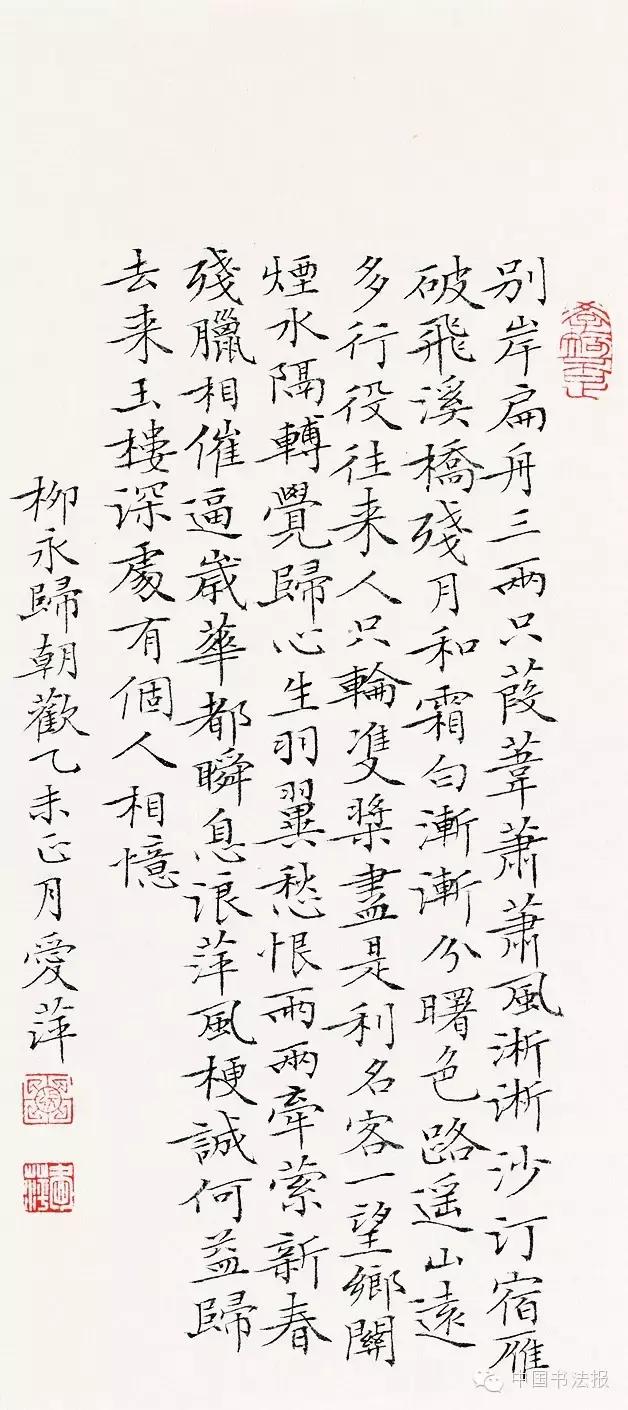 別岸扁舟三兩只葭葦蕭蕭風淅淅沙汀宿雁
破飛溪橋殘月和霜白漸漸分曙色路遥山遠
多行役往来人只輪雙槳盡是利名客一望鄉關
煙水隔轉覺歸心生羽翼愁恨雨兩牽縈新春
殘臘相催逼歲華都瞬息浪萍風梗誠何益歸
去来玉樓深處有個人相憶
柳永歸朝歡乙未正月愛萍
中国书法报